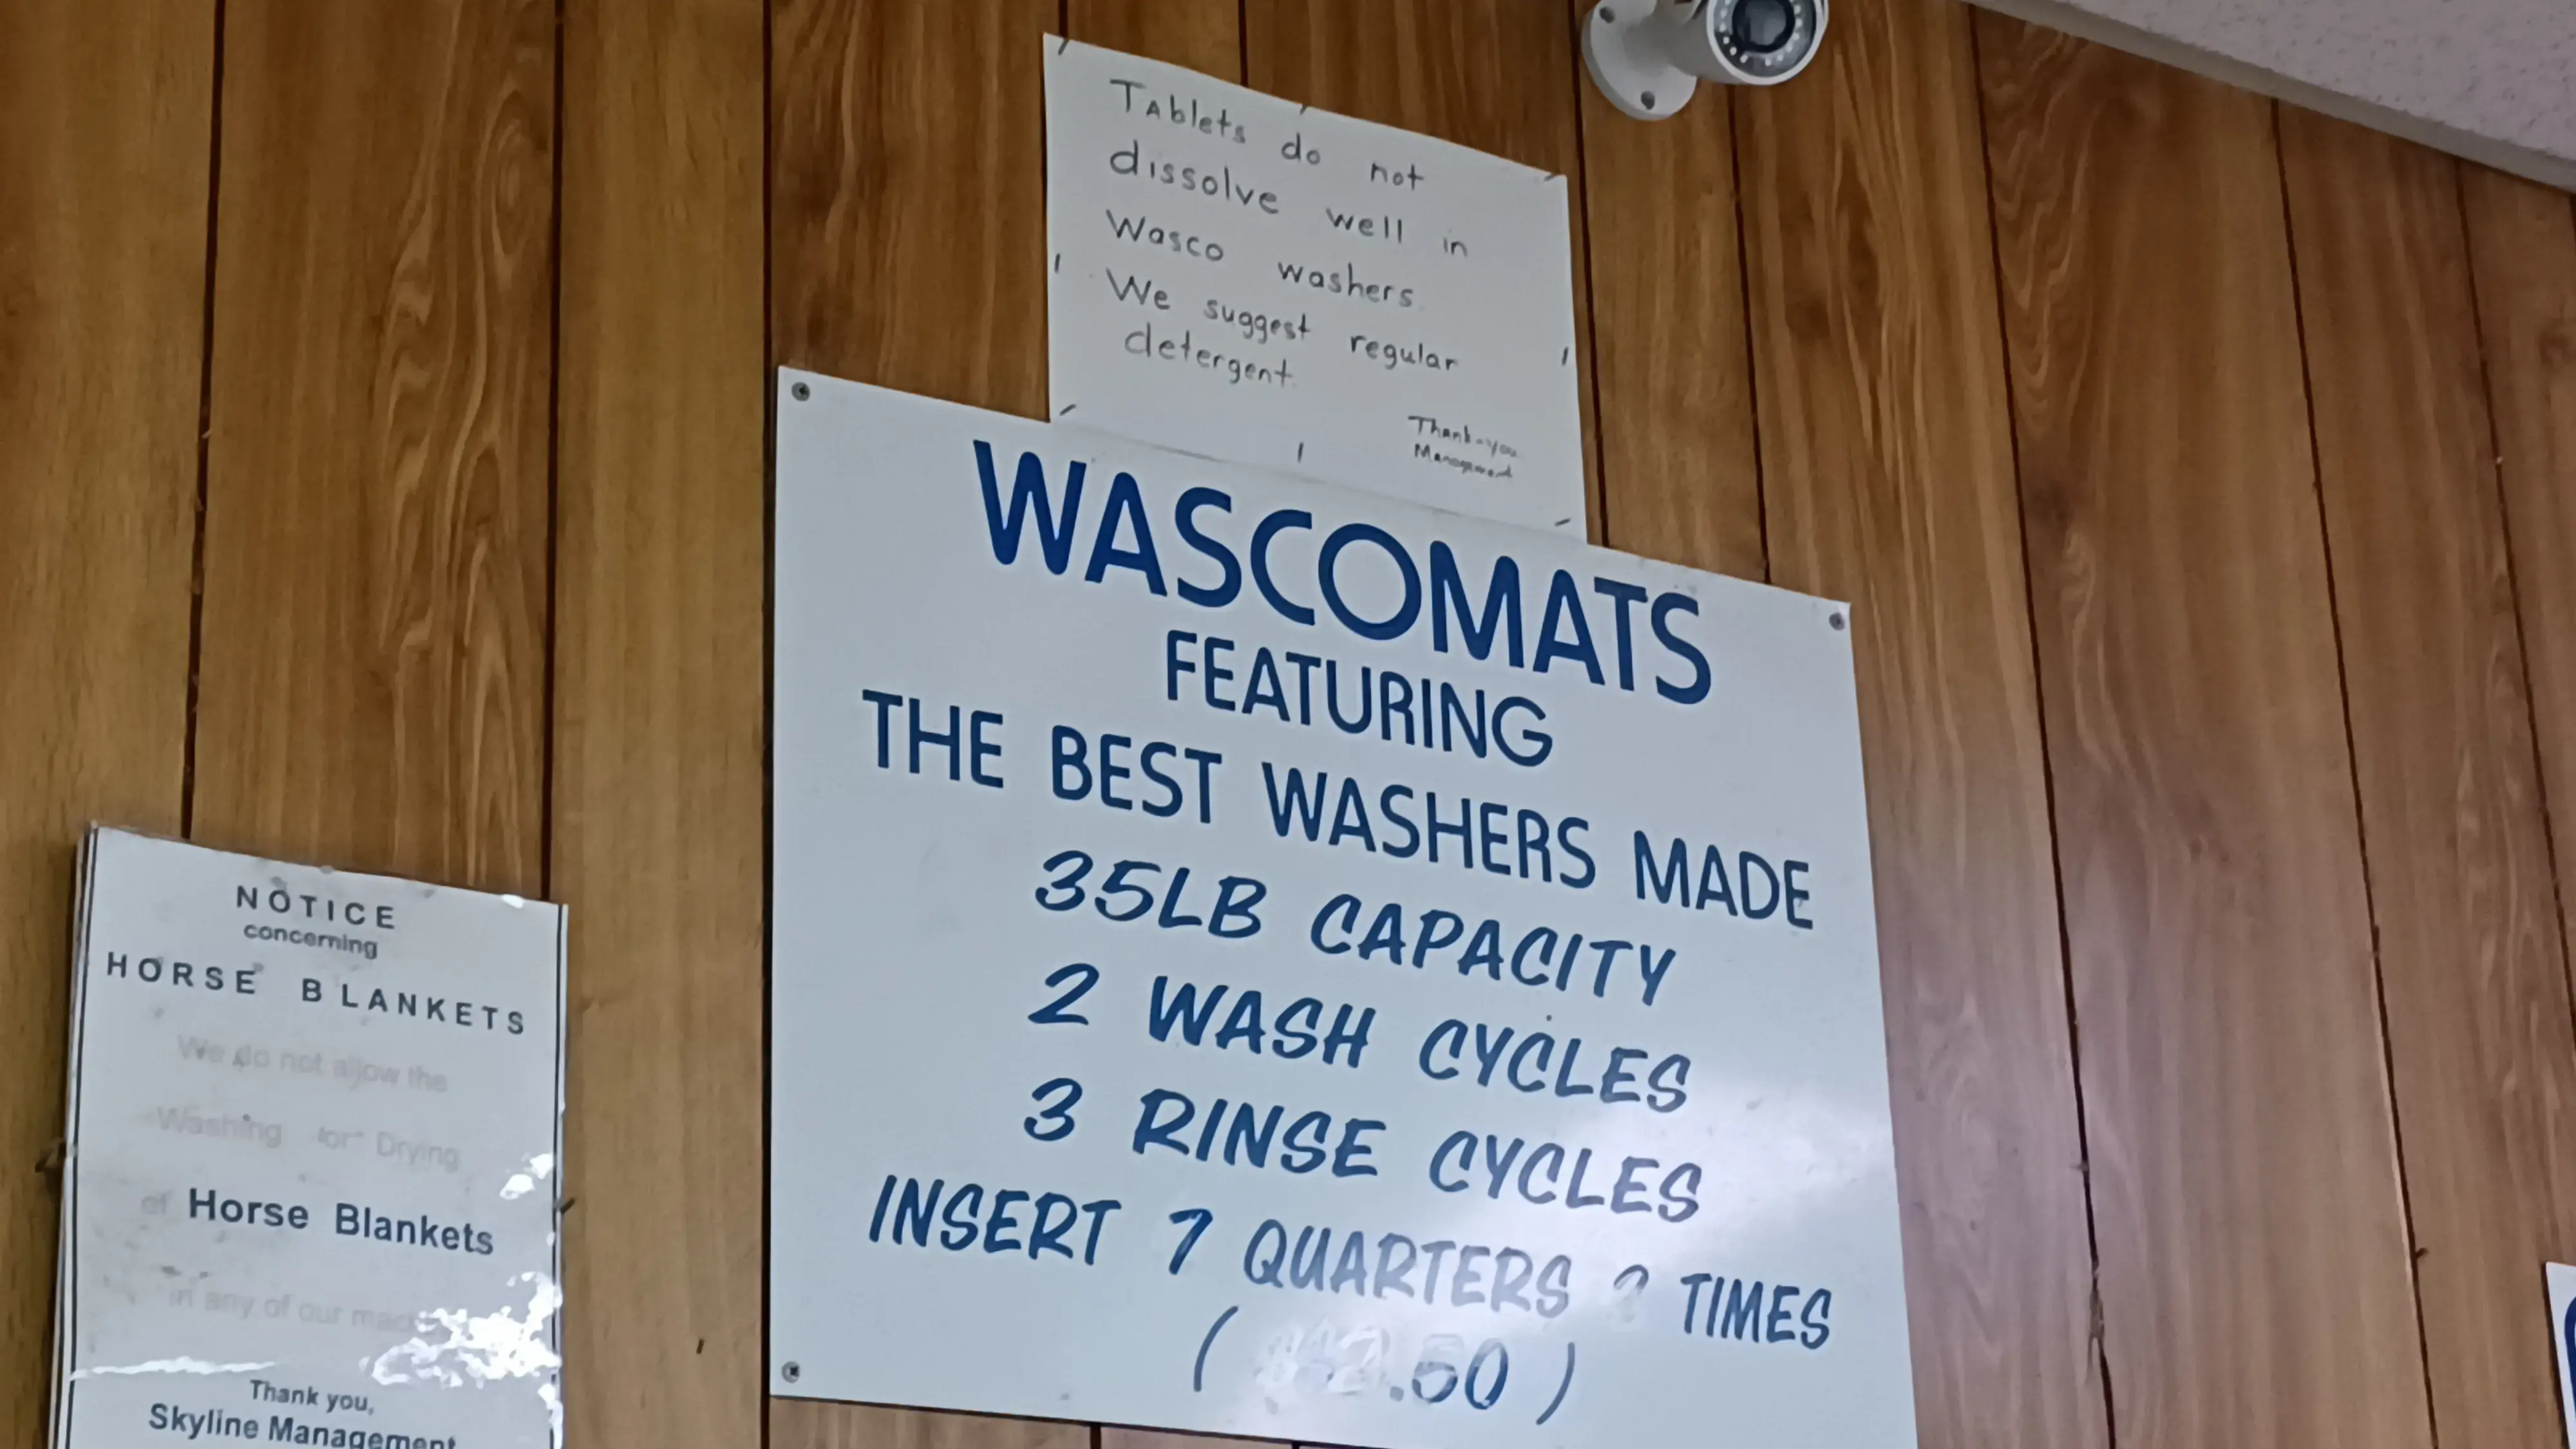 Tablets do not
dissolve well in
Wasco washers.
We suggest regular
detergent.
Thank-you
Management
WASCOMATS
FEATURING
THE BEST WASHERS MADE
35LB CAPACITY
2 WASH CYCLES
3 RINSE CYCLES
INSERT 7 QUARTERS TIMES
( .50 )
NOTICE
concerning
HORSE BLANKETS
We do not allow the
Washing "or" Drying
of Horse Blankets
in any of our
Thank you,
Skyline Management